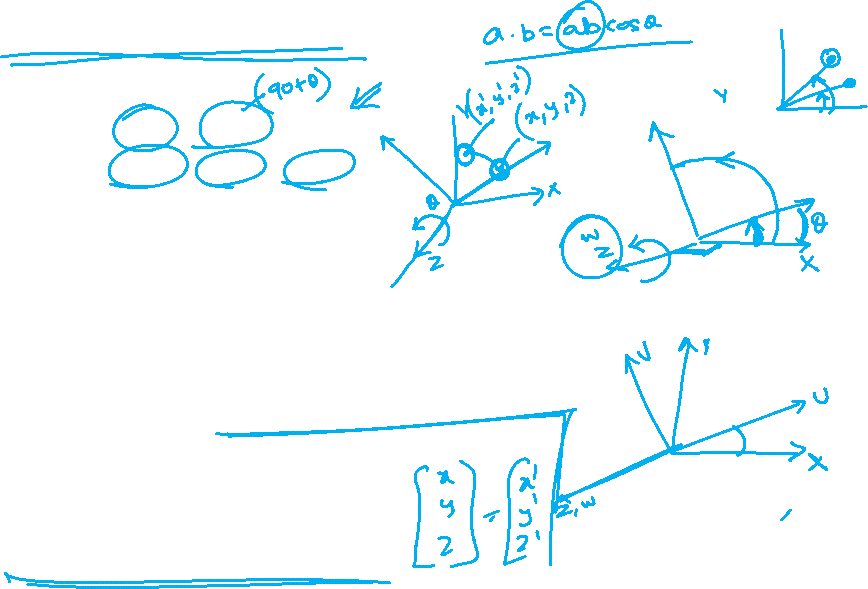 a·b = ab cosθ
(90+θ)
Y (x', y', z')
(x, y, z)
X
θ
Z
Y
θ
X
w
Z
V
Y
U
X
Z, w
[x y z] = [x' y' z']